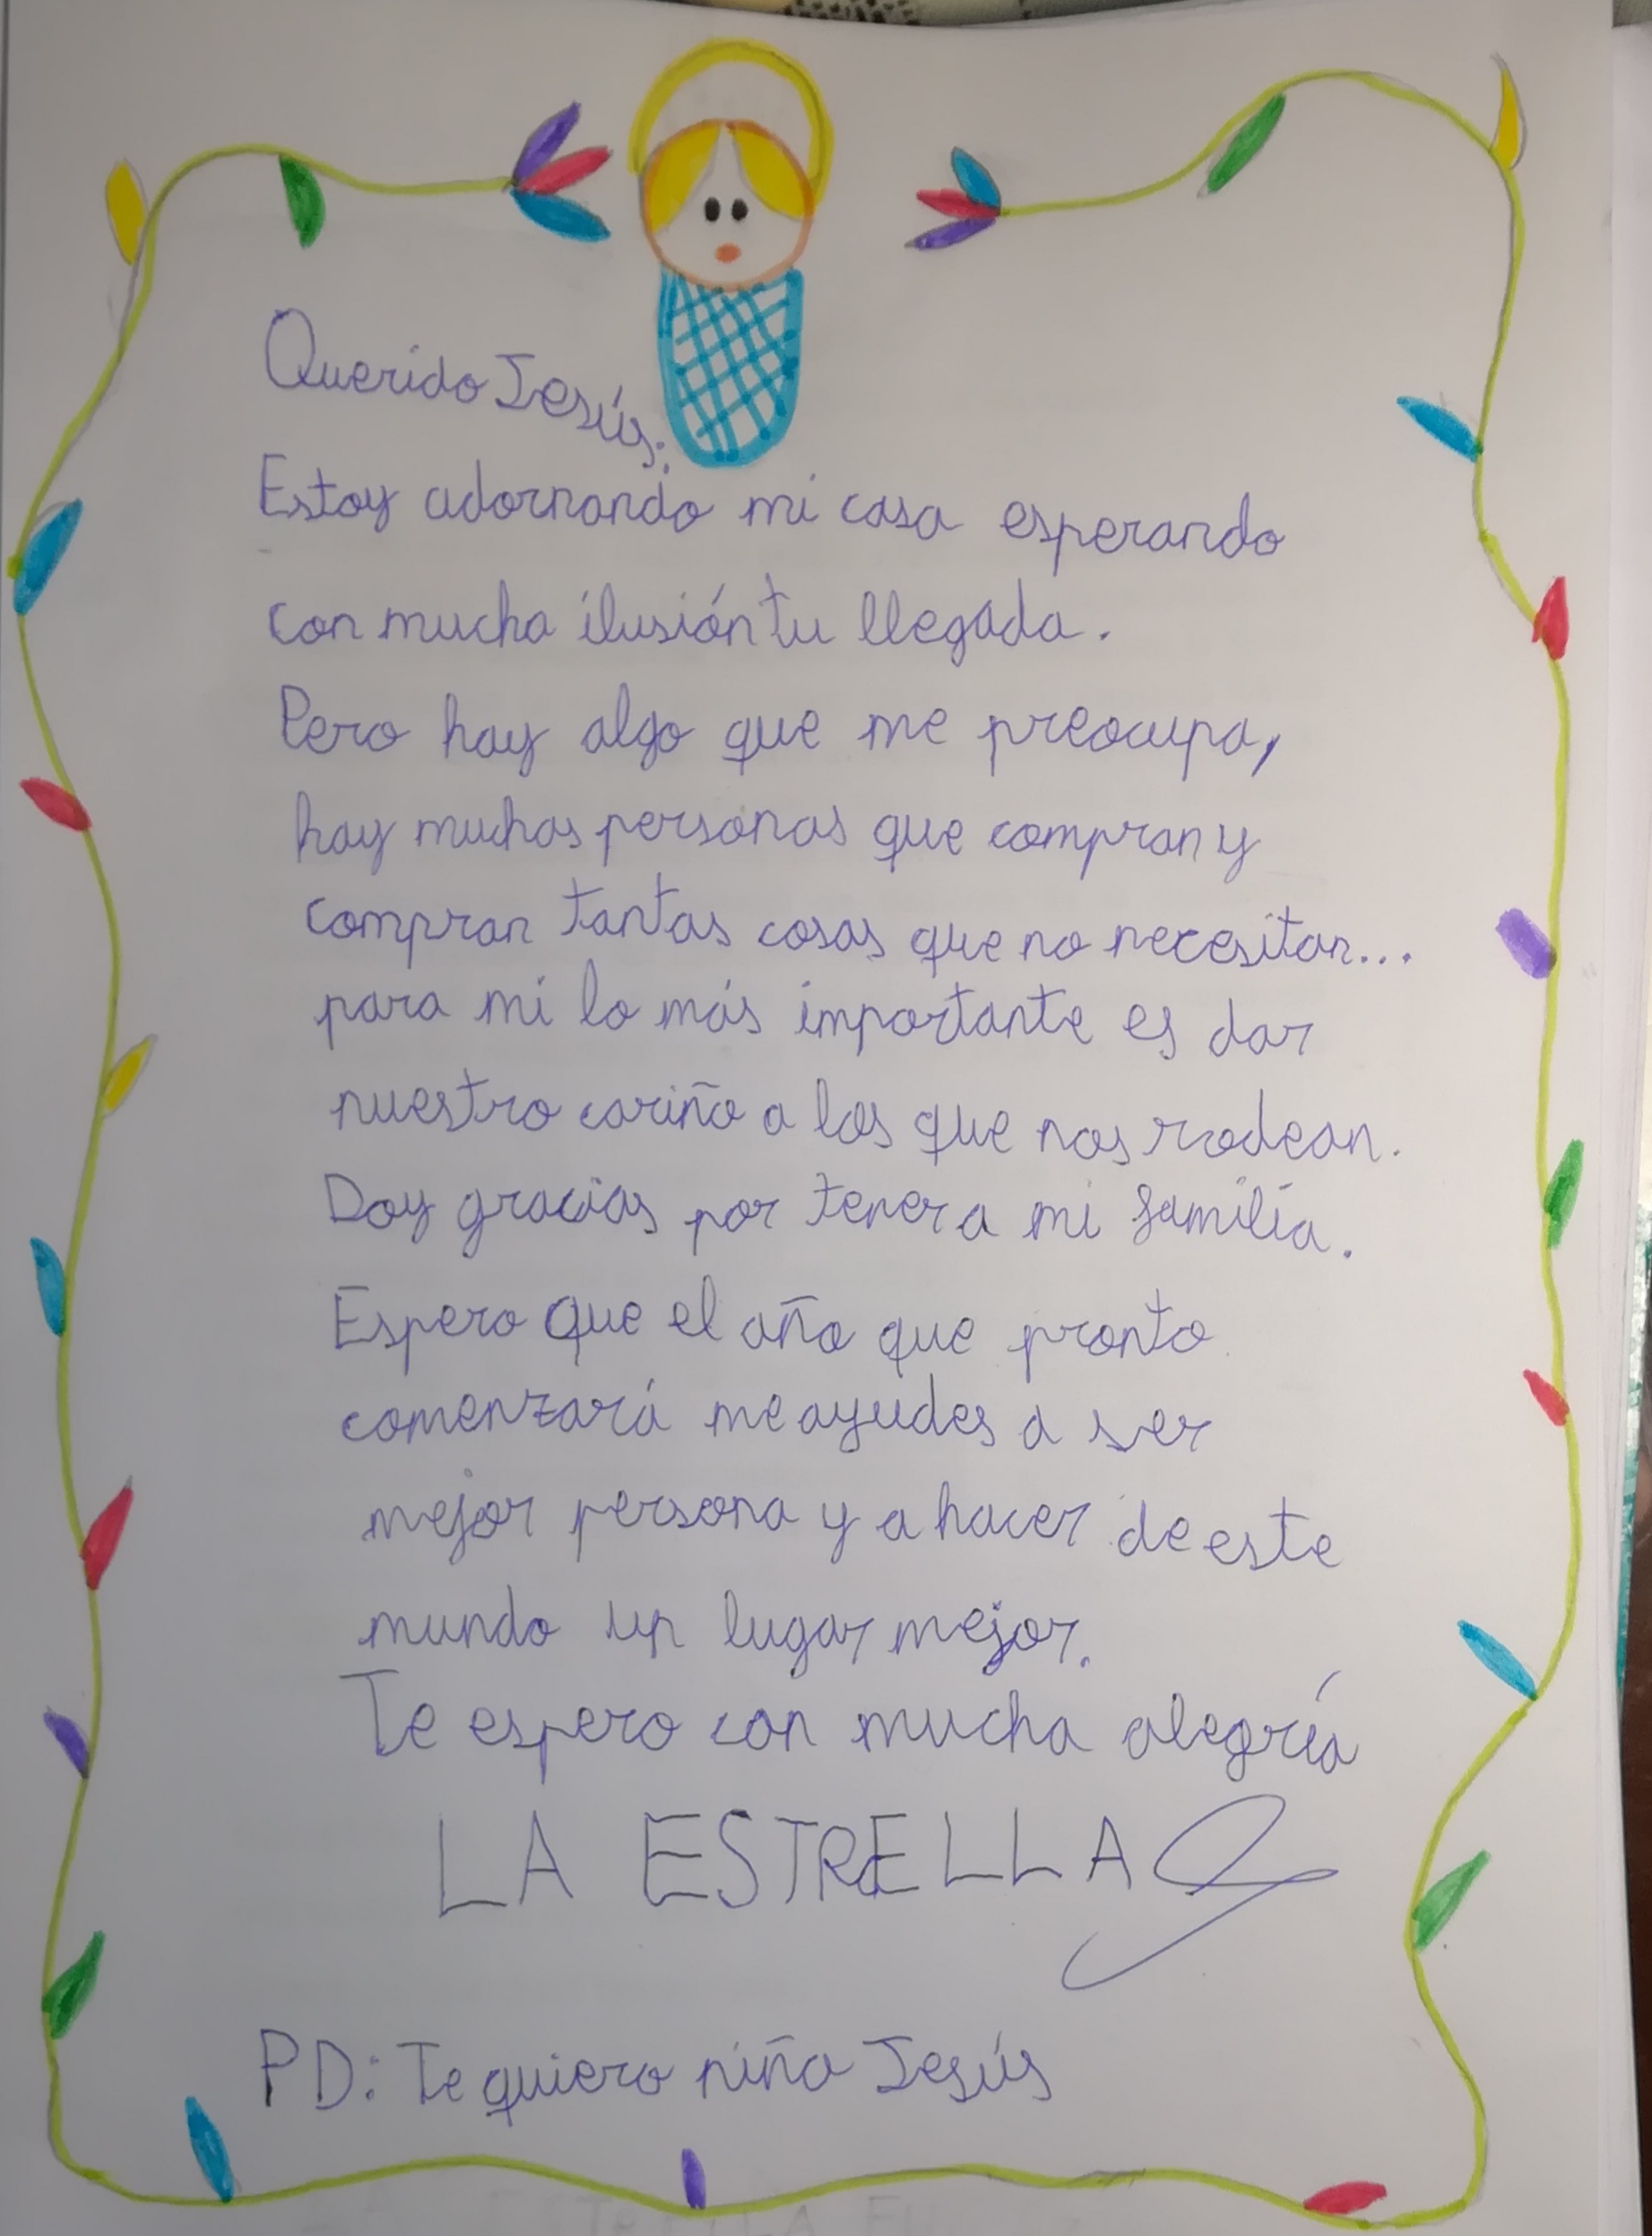 Querido Jesús:
Estoy adornando mi casa esperando
con mucha ilusión tu llegada.
Pero hay algo que me preocupa,
hay muchas personas que compran y
compran tantas cosas que no necesitan...
para mi lo más importante es dar
nuestro cariño a los que nos rodean.
Doy gracias por tener a mi familia.
Espero que el año que pronto
comenzará me ayudes a ser
mejor persona y a hacer de este
mundo un lugar mejor.
Te espero con mucha alegría
LA ESTRELLA
PD: Te quiero niño Jesús